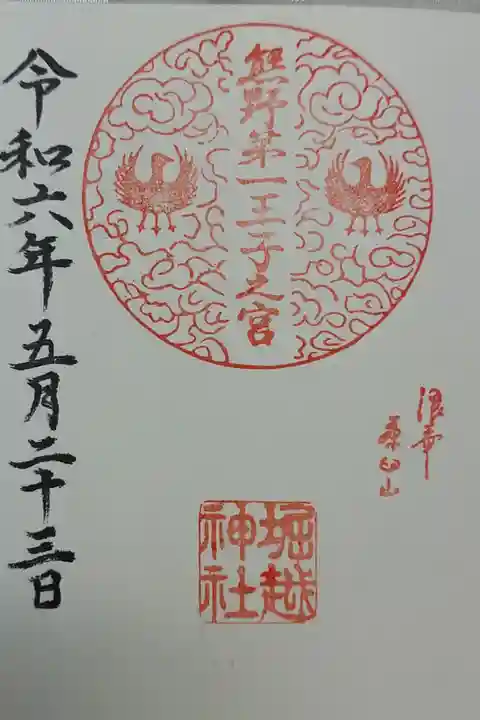 熊野第一王子之宮
浪華
茶臼山
堀越
神社
令和六年五月二十三日